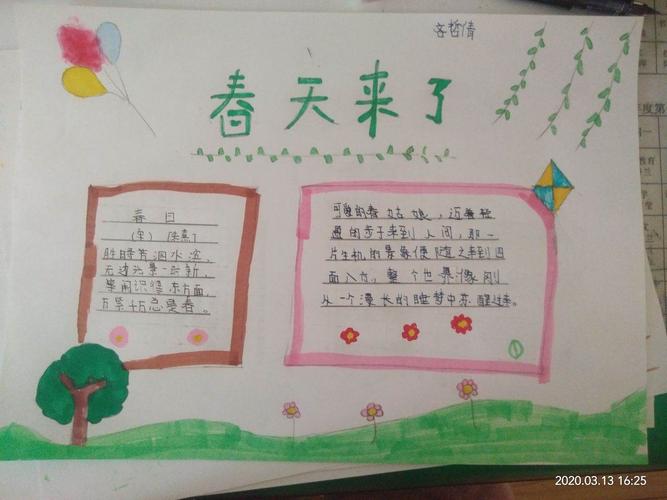 春天来了
春日
(宋) 朱熹
胜日寻芳泗水滨,
无边光景一时新,
等闲识得东方面,
万紫千红总是春。
可爱的春姑娘,迈着轻
盈的步子来到人间,那一
片生机的景象便随之来到四
面八方。整个世界像刚
从一个漫长的睡梦中苏醒过来。
2020.03.13 16:25